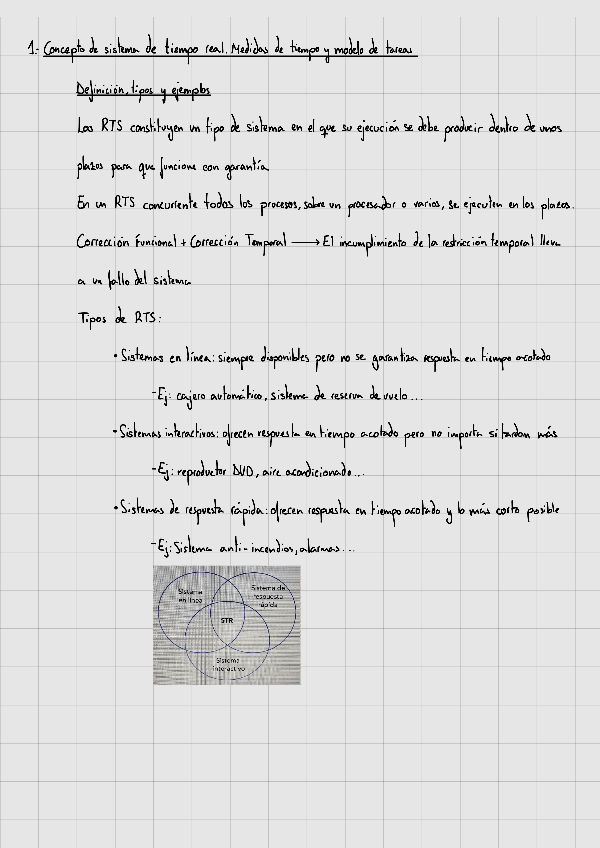 1.- Concepto de sistema de tiempo real. Medidas de tiempo y modelo de tareas
Definición, tipos y ejemplos
Los RTS constituyen un tipo de sistema en el que su ejecución se debe producir dentro de unos
plazos para que funcione con garantía
En un RTS concurrente todos los procesos, sobre un procesador o varios, se ejecuten en los plazos.
Corrección Funcional + Corrección Temporal → El incumplimiento de la restricción temporal lleva
a un fallo del sistema
Tipos de RTS:
• Sistemas en línea: siempre disponibles pero no se garantiza respuesta en tiempo acotado
- Ej: cajero automático, sistema de reserva de vuelo...
• Sistemas interactivos: ofrecen respuesta en tiempo acotado pero no importa si tardan más
- Ej: reproductor DVD, aire acondicionado...
• Sistemas de respuesta rápida: ofrecen respuesta en tiempo acotado y lo más corto posible
- Ej: Sistema anti-incendios, alarmas...
Sistema
en línea
Sistema de
respuesta
rápida
STR
Sistema
interactivo